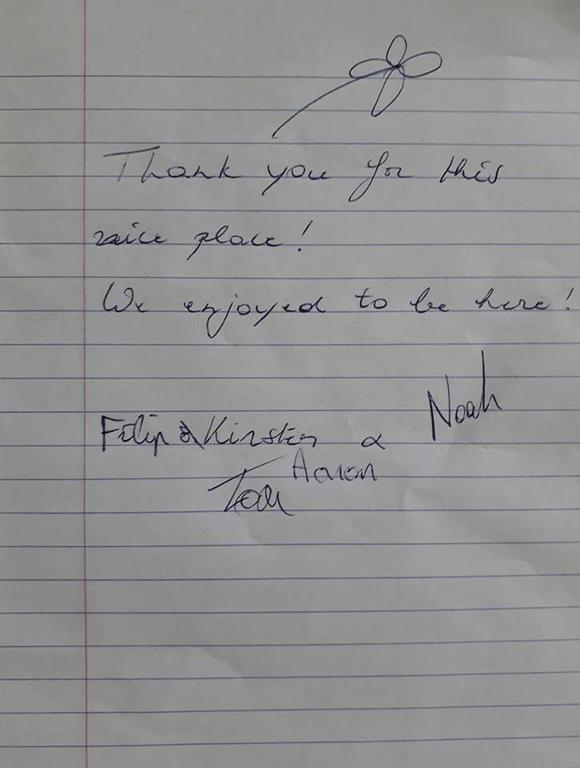 Thank you for this
nice place!
We enjoyed to be here!
Noah
Filip & Kirsten &
Aaron